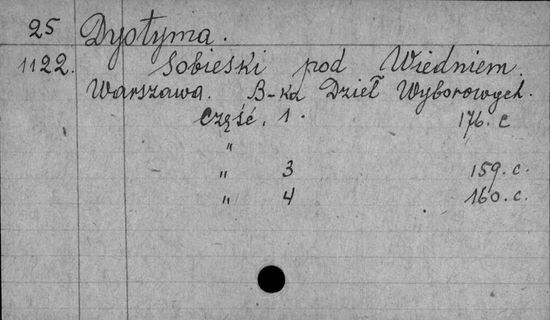 25 Dyotyma.
1122. Sobieski pod Wiedniem.
Warszawa. B-ka Dzieł Wyborowych.
Część. 1. 176. c
"
" 3 159. c.
" 4 160. c.